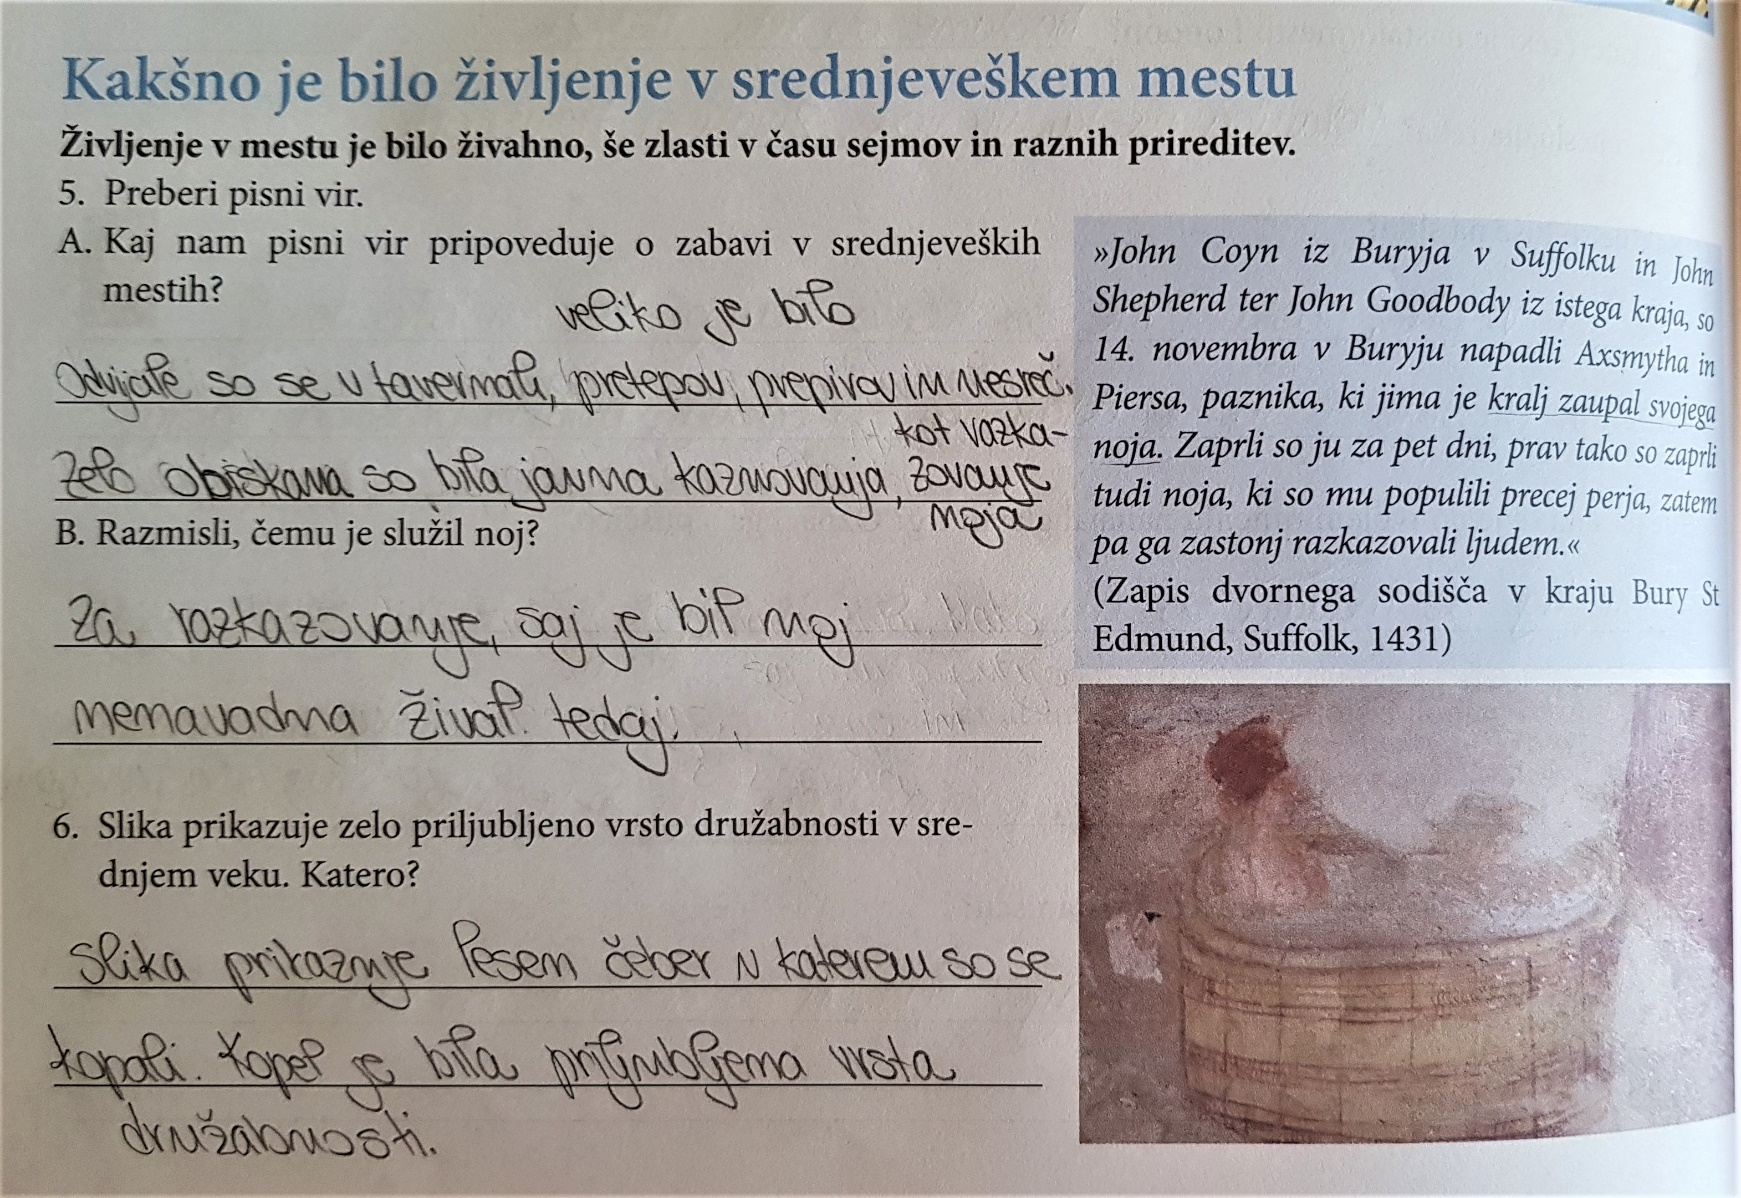 Kakšno je bilo življenje v srednjeveškem mestu
Življenje v mestu je bilo živahno, še zlasti v času sejmov in raznih prireditev.
5. Preberi pisni vir.
A. Kaj nam pisni vir pripoveduje o zabavi v srednjeveških
mestih?
veliko je bilo
Odvijale so se v tavernah, pretepov, prepirov in nesreč.
kot razka-
Zelo obiskana so bila javna kaznovanja, zovanje
noja
B. Razmisli, čemu je služil noj?
Za razkazovanje, saj je bil noj
nenavadna žival tedaj.
6. Slika prikazuje zelo priljubljeno vrsto družabnosti v sre-
dnjem veku. Katero?
Slika prikazuje lesen čeber v katerem so se
kopali. Kopel je bila priljubljena vrsta
družabnosti.
»John Coyn iz Buryja v Suffolku in John
Shepherd ter John Goodbody iz istega kraja, so
14. novembra v Buryju napadli Axsmytha in
Piersa, paznika, ki jima je kralj zaupal svojega
noja. Zaprli so ju za pet dni, prav tako so zaprli
tudi noja, ki so mu populili precej perja, zatem
pa ga zastonj razkazovali ljudem.«
(Zapis dvornega sodišča v kraju Bury St
Edmund, Suffolk, 1431)